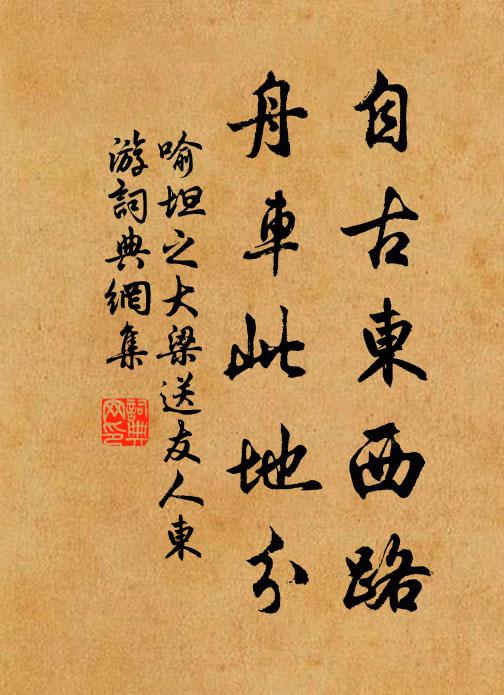 自古東西路
舟車此地分
喻坦之大梁送友人東
游詞典網集
詞典
网印